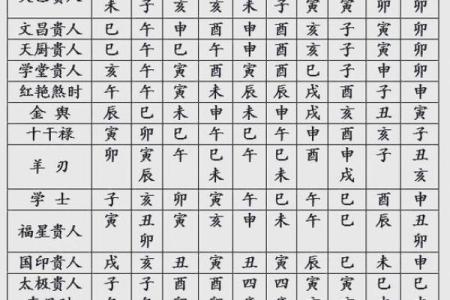 未 子 亥 亥 未 子 寅 寅 卯 卯
文昌貴人 巳 午 申 酉 申 酉 亥 子 寅 卯
天厨貴人 巳 午 巳 午 申 酉 亥 子 寅 卯
学堂貴人 亥 午 寅 酉 寅 酉 巳 子 申 卯
红艳煞时 午 午 寅 未 辰 辰 戌 酉 子 申
金 舆 辰 巳 未 申 未 申 戌 亥 丑 寅
十干禄 寅 卯 巳 午 巳 午 申 酉 亥 子
羊 刃 卯 寅 午 巳 午 巳 酉 申 子 丑
辰 未 未 戌 亥
学 士 子 亥 卯 寅 午 巳 午 巳 酉 申
福星貴人 寅 丑 寅 亥 申 未 午 巳 辰 丑
卯
国印貴人 戌 亥 丑 寅 丑 寅 辰 巳 未 申
太极貴人 子 子 酉 酉 四 四 寅 寅 巳 巳